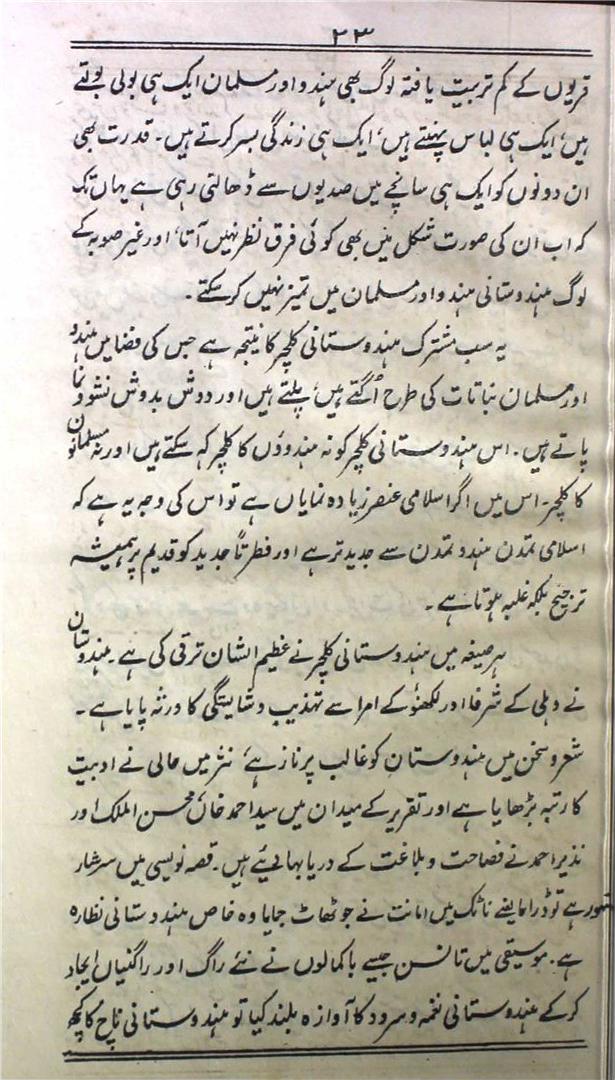 ۲۳
قریوں کے کم تربیت یافتہ لوگ بھی ہندو اور مسلمان ایک ہی بولی بولتے
ہیں، ایک ہی لباس پہنتے ہیں، ایک ہی زندگی بسر کرتے ہیں۔ قدرت بھی
ان دونوں کو ایک ہی سانچے میں صدیوں سے ڈھالتی رہی ہے یہاں تک
کہ اب ان کی صورت شکل میں بھی کوئی فرق نظر نہیں آتا، اور غیر صوبہ کے
لوگ ہندوستانی ہندو اور مسلمان میں تمیز نہیں کر سکتے۔
یہ سب مشترک ہندوستانی کلچر کا نتیجہ ہے جس کی فضا میں ہندو
اور مسلمان نباتات کی طرح اُگتے ہیں، پلتے ہیں اور دوش بدوش نشو و نما
پاتے ہیں۔ اس ہندوستانی کلچر کو نہ ہندوؤں کا کلچر کہہ سکتے ہیں اور نہ مسلمانوں
کا کلچر۔ اس میں اگر اسلامی عنصر زیادہ نمایاں ہے تو اس کی وجہ یہ ہے کہ
اسلامی تمدن ہندو تمدن سے جدید تر ہے اور فطرتاً جدید کو قدیم پر ہمیشہ
ترجیح بلکہ غلبہ ہوتا ہے۔
ہر صیغہ میں ہندوستانی کلچر نے عظیم الشان ترقی کی ہے۔ ہندوستان
نے دہلی کے شرفا اور لکھنؤ کے امرا سے تہذیب و شایستگی کا ورثہ پایا ہے۔
شعر و سخن میں ہندوستان کو غالب پر ناز ہے، نثر میں حالی نے ادبیت
کا رتبہ بڑھایا ہے اور تقریر کے میدان میں سید احمد خاں، محسن الملک اور
نذیر احمد نے فصاحت و بلاغت کے دریا بہا دیئے ہیں۔ قصہ نویسی میں سرشار
مشہور ہے تو ڈراما یعنے ناٹک میں امانت نے جو ٹھاٹ جمایا وہ خاص ہندوستانی نظارہ
ہے۔ موسیقی میں تانسن جیسے باکمالوں نے نئے راگ اور راگنیاں ایجاد
کر کے ہندوستانی نغمہ و سرود کا آوازہ بلند کیا تو ہندوستانی ناچ کا کچھ